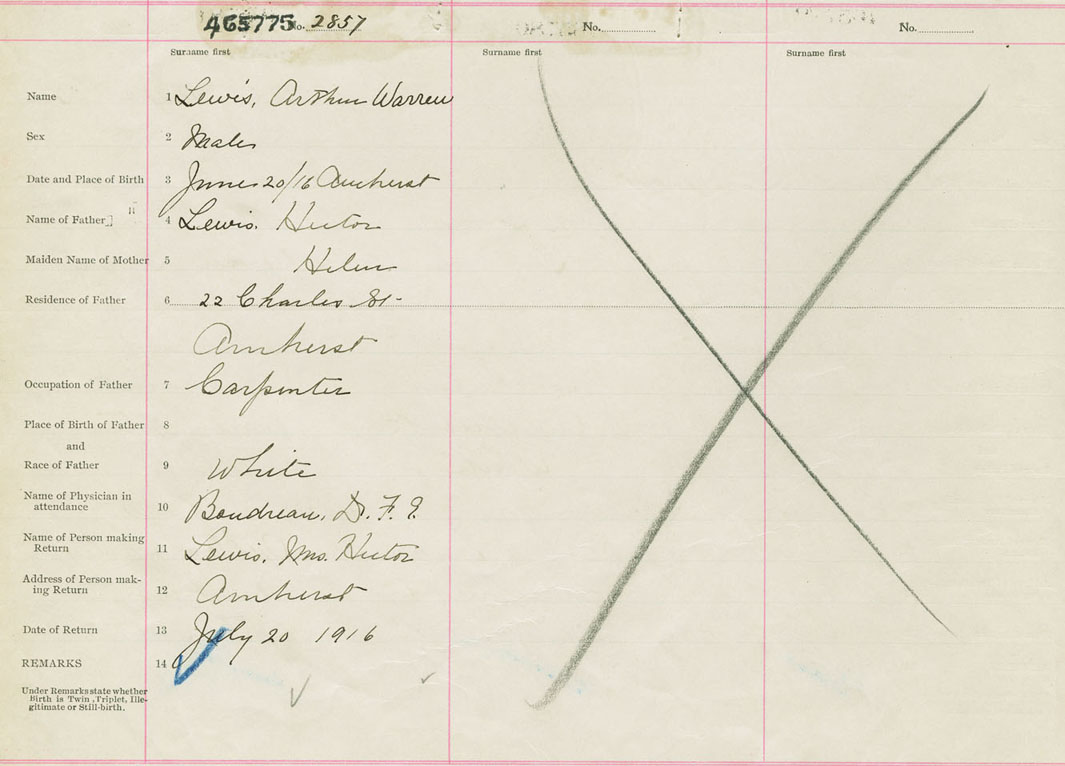 465775 No. 2857 No. No.
Surname first Surname first Surname first
Name 1 Lewis, Arthur Warren
Sex 2 Male
Date and Place of Birth 3 June 20/16 Amherst
Name of Father 4 Lewis. Hector
Maiden Name of Mother 5 Helen
Residence of Father 6 22 Charles St-
Amherst
Occupation of Father 7 Carpenter
Place of Birth of Father 8
and
Race of Father 9 White
Name of Physician in
attendance 10 Boudreau, Dr. F. E.
Name of Person making
Return 11 Lewis, Mrs. Hector
Address of Person mak-
ing Return 12 Amherst
Date of Return 13 July 20 1916
REMARKS 14
Under Remarks state whether
Birth is Twin, Triplet, Ille-
gitimate or Still-birth.